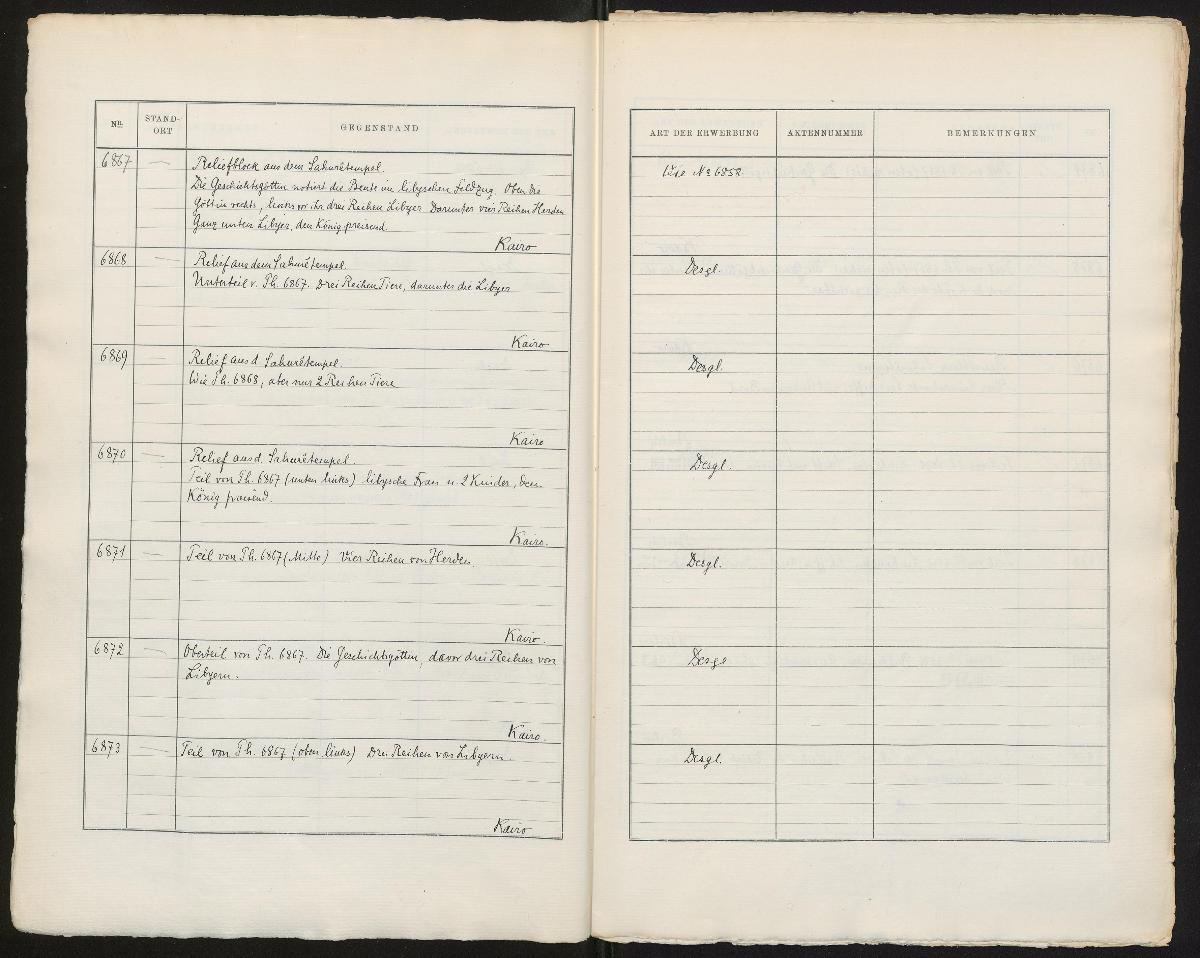 Nr. STAND-ORT GEGENSTAND
6867 — Reliefblock aus dem Sahurêtempel.
Die Geschichtsgöttin notiert die Beute im libyschen Feldzug. Oben die
Göttin rechts, links vor ihr drei Reihen Libyer. Darunter vier Reihen Herden
Ganz unten Libyer, den König preisend.
Kairo
6868 — Relief aus dem Sahurêtempel.
Unterteil v. Ph. 6867. Drei Reihen Tiere, darunter die Libyer
Kairo
6869 — Relief aus d. Sahurêtempel.
Wie Ph. 6868, aber nur 2 Reihen Tiere
Kairo
6870 — Relief aus d. Sahurêtempel.
Teil von Ph. 6867 (unten links) libysche Frau u. 2 Kinder, den
König preisend.
Kairo.
6871 — Teil von Ph. 6867 (Mitte) Vier Reihen von Herden.
Kairo.
6872 — Oberteil von Ph. 6867. Die Geschichtsgöttin, davor drei Reihen von
Libyern.
Kairo.
6873 — Teil von Ph. 6867 (oben links) Drei Reihen von Libyern.
Kairo
ART DER ERWERBUNG AKTENNUMMER BEMERKUNGEN
Wie No 6852
Desgl.
Desgl.
Desgl.
Desgl.
Desgl
Desgl.